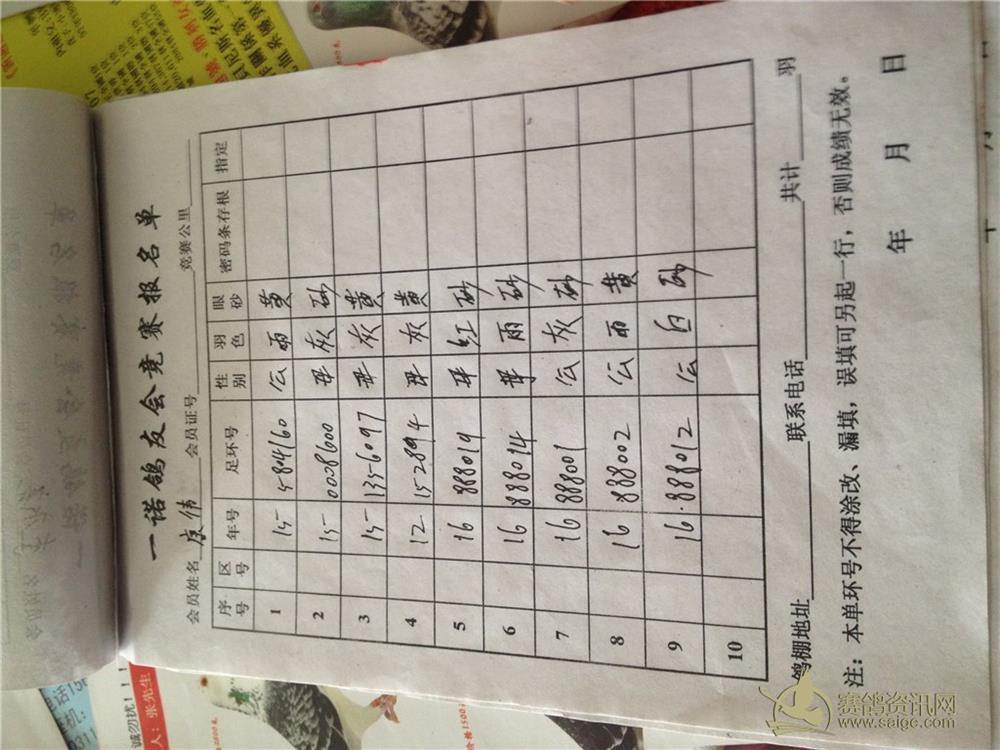 一诺鸽友会竞赛报名单
会员姓名 会员证号 竞赛公里
序号 区号 年号 足环号 性别 羽色 眼砂 密码条存根 指定
1 15- 5804160 公 雨 黄
2 15- 0008600 母 灰 砂
3 15- 1356097 母 灰 黄
4 12 152894 母 灰 黄
5 16 888019 母 红 砂
6 16 888014 母 雨 砂
7 16 888001 公 灰 砂
8 16 888002 公 雨 黄
9 16 888012 公 白 砂
10
鸽棚地址 联系电话 共计 羽
注：本单环号不得涂改、漏填，误填可另起一行，否则成绩无效。
年 月 日
诚勿扰！！
人：张先生
赛鸽资讯网
www.saige.com